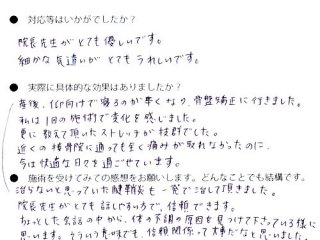 ● 対応等はいかがでしたか？
院長先生がとても優しいです。
細かな気遣いがとてもうれしいです。
● 実際に具体的な効果はありましたか？
産後、仰向けで寝るのが辛くなり、骨盤矯正に行きました。
私は1回の施術で変化を感じました。
更に教えて頂いたストレッチが抜群でした。
近くの接骨院に通っても全く痛みが取れなかったのに、
今は快適な日々を過ごせています。
● 施術を受けてみての感想をお願いします。どんなことでも結構です。
治らないと思ってみていた腱鞘炎も一発で治して頂きました。
院長先生がとても話しやすい方で、信頼できます。
ちょっとした会話の中から、体の不調の原因を見つけて下さっている様に
思います。そういう意味でも、信頼関係って大事だなと思いました。